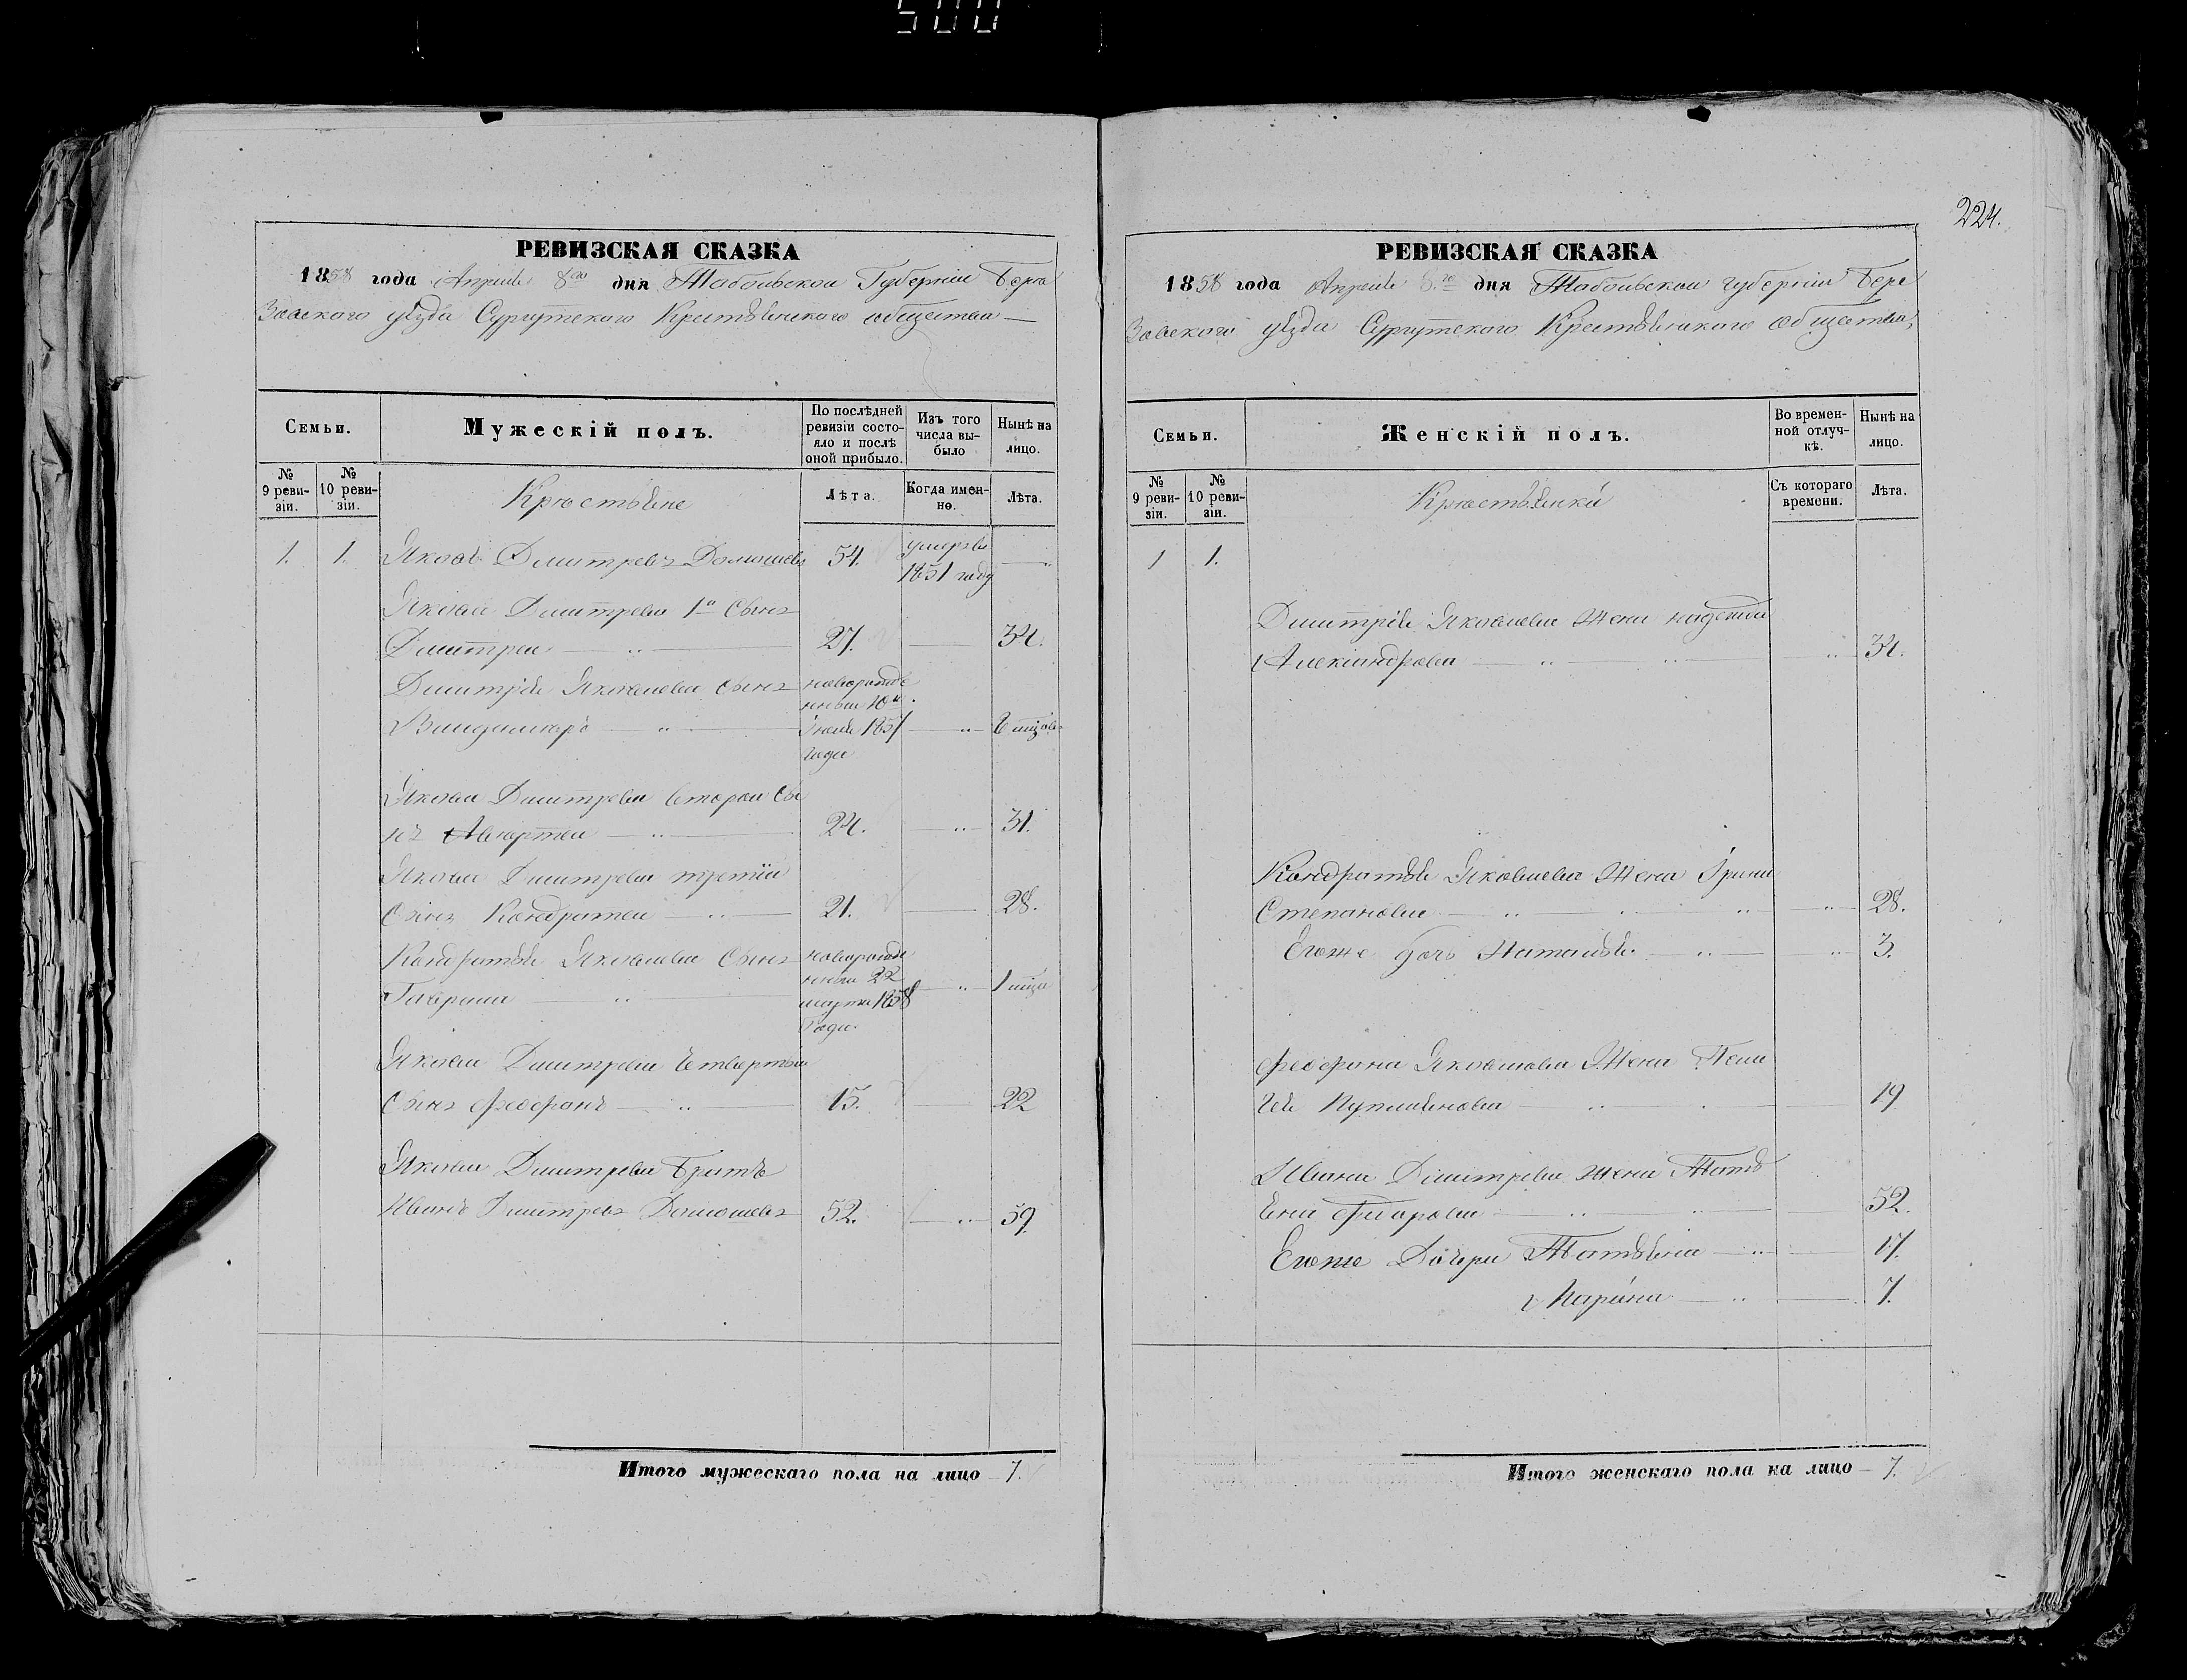 500
224.
РЕВИЗСКАЯ СКАЗКА
1858 года Апреля 8го дня Тобольской Губернии Бере
Зовского уѣзда Сургутского Крестьянского общества
Семьи.
Мужескій полъ.
По послѣдней ревизіи состояло и послѣ оной прибыло.
Изъ того числа выбыло
Нынѣ на лицо.
№ 9 ревизіи.
№ 10 ревизіи.
Крестьяне
Лѣта.
Когда именно.
Лѣта.
1. 1. Яковъ Дмитревъ 54. умеръ въ
1851 году
Якова Дмитрева 1й Сынъ
Дмитреи 27. 34.
Дмитрія Яковлева Сынъ новорожде
нный 10го
1857 6 мцовъ
года
Якова Дмитрева второи Сы
нъ 24. 31.
Якова Дмитрева третіи
Сынъ Кондратеи 21. 28.
Кондратья Яковлева Сынъ новорожде
нный 22
Гаврила марта 1858 1 мца
Года.
Якова Дмитрева Четвертыи
Сынъ Феофанъ 15. 22
Якова Дмитрева Братъ
Иванъ Дмитревъ 52. 59.
Итого мужескаго пола на лицо 7.
РЕВИЗСКАЯ СКАЗКА
1858 года Апреля 8.го дня Тобольской губерніи Бере
Зовского уѣзда Сургутского Крестьянского общества,
Семьи.
Женскій полъ.
Во временной отлучкѣ.
Нынѣ на лицо.
№ 9 ревизіи.
№ 10 ревизіи.
Крестьянки
Съ котораго времени.
Лѣта.
1 1.
Дмитрія Яковлева Жена надежда
Александрова 34.
Кондратья Яковлева Жена Ірина
Степанова 28.
Егоже дочь Наталья 3.
Феофана Яковлева Жена Пела
гея 19
Ивана Дмитрева жена Татья
на 52.
Егоже Дочери Татьяна 17.
Марина 7.
Итого женскаго пола на лицо 7.